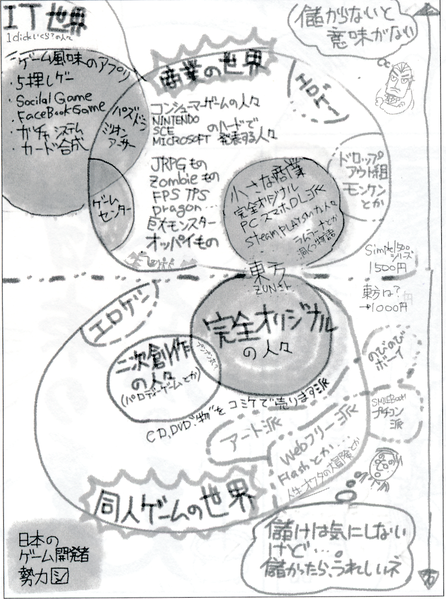 IT世界
ゲーム風味のアプリ
・5押しゲー
・Social Game
・FaceBookGame
・ガチャシステム
・カード合成
パズドラ
ミリオン
アーサー
ゲーム
センター
商業の世界
コンシューマーゲームの人々
NINTENDO
SCE
MICROSOFT
のハードで
発表する人々
JRPGもの
Zombieもの
FPS TPS
Dragon
巨大モンスター
オッパイもの
エロゲー
小さな商業
完全オリジナル
PC スマホDL派
ドロップ
アウト組
モンケン
とか
儲からないと
意味がない
Simple1500
シリーズ
1500円
東方は?
→1000円
東方
ZUN
完全オリジナル
の人々
エロゲー
二次創作
の人々
(パロディーゲームとか)
CD、DVD、"物"をコミケで売ります派
アート派
Webフリー派
Flashとか
のびのび
ボーイ
プチコン
派
同人ゲームの世界
日本の
ゲーム開発者
勢力図
儲けは気にしない
けど…
儲かったら、うれしいネ